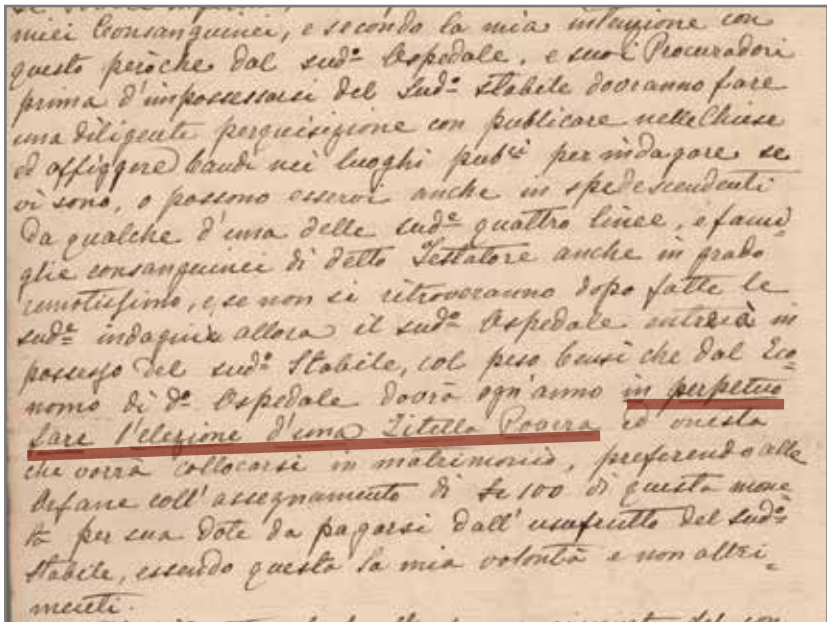 miei Consanguinei, e secondo la mia intenzione con
questo peròche dal sudº Ospedale, e suoi Procuradori
prima d'impossessarsi del Sudº Stabile dovranno fare
una diligente perquisizione con publicare nelle Chiese
ed affiggere bandi nei luoghi pubci per indagare se
vi sono, o possono esservi anche in spedescendenti
da qualche d'una delle sude quattro linee, e fami=
glie consanguinei di detto Testatore anche in grado
remotissimo, e se non si ritroveranno dopo fatte le
sude indagini allora il sudº Ospedale entrerà in
possesso del sudº Stabile, col peso bensi che dal Eco=
nomo di dº Ospedale dovrà ogn'anno in perpetuo
fare l'elezione d'una Zitella Povera ed onesta
che vorrà collocarsi in matrimonio, preferendo alle
Orfane coll'assegnamento di 100 di questa mone=
ta per sua Dote da pagarsi dall'usufrutto del sudº
Stabile, essendo questa la mia volontà e non altri=
menti.